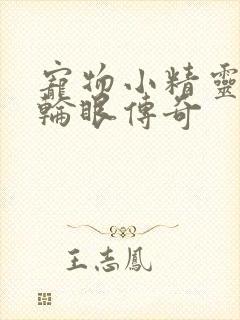 寵物小精靈
輪眼傳奇
王志鳳